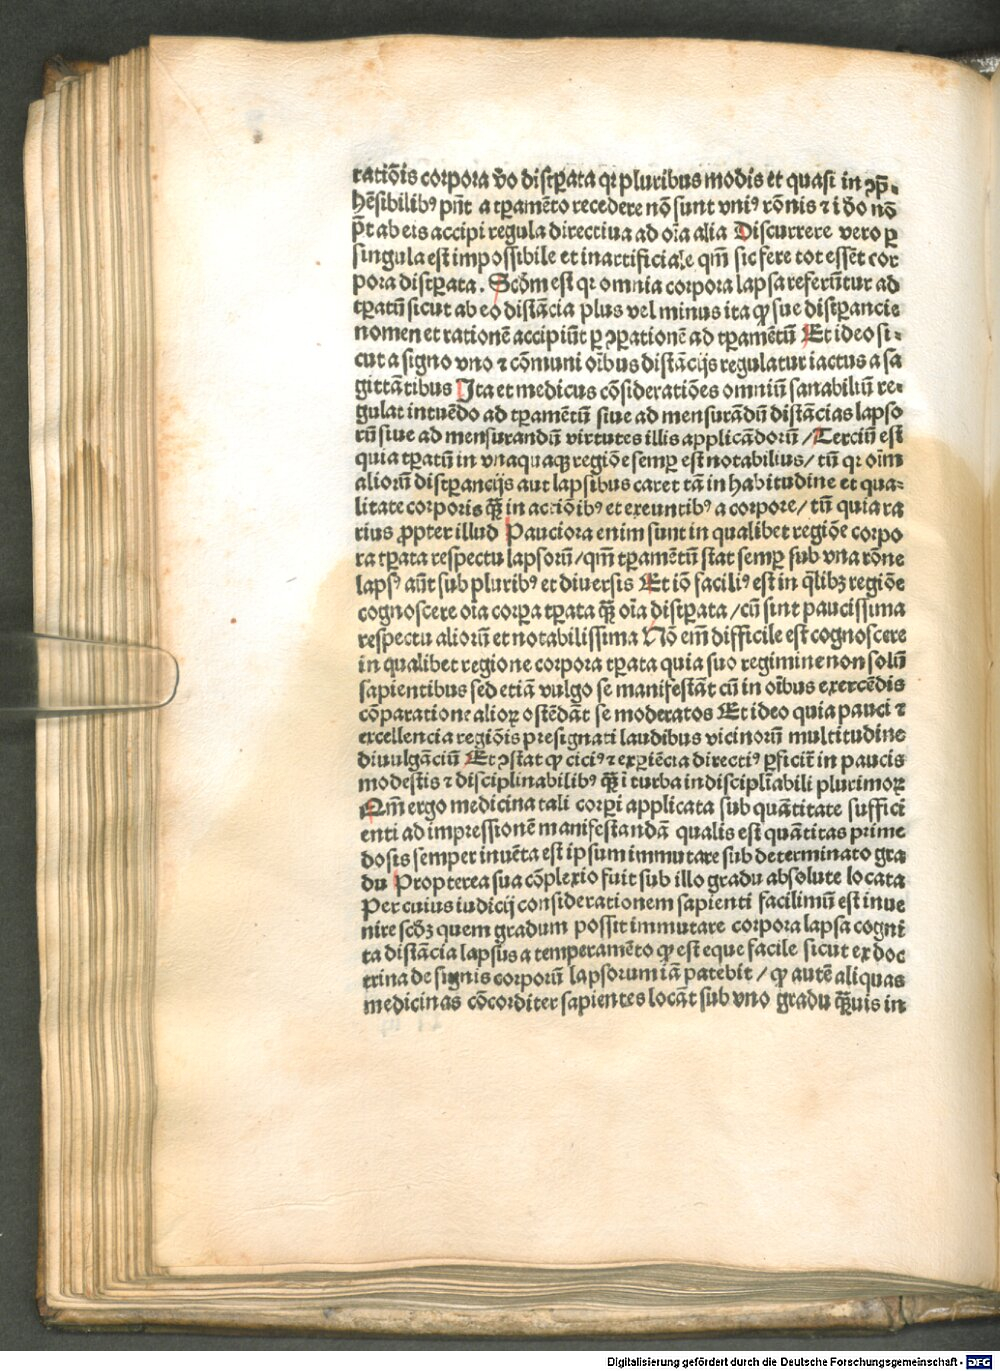 ratiõis corpora v̄o disꝑata qꝛ pluribus modis et quasi in ꝯp̄-
hēsibilibꝰ pn̄t a tꝑamẽto recedere nõ sunt vniꝰ rõnis ⁊ iḋo nõ
p̄t ab eis accipi regula directiua ad oĩa alia Discurrere vero ꝑ
singula est impossibile et inartificiale qm̄ sic fere tot essēt cor
pora disꝑata. Scḋm est qꝛ omnia corpora lapsa referũtur ad
tꝑatũ sicut ab eo distãcia plus vel minus ita ꝙ sue disꝑancie
nomen et rationẽ accipiũt ꝑ ꝯꝑationẽ ad tꝑamẽtũ Et ideo si-
cut a signo vno ⁊ cõmuni oĩbus distãcijs regulatur iactus a sa
gittãtibus Ita et medicus cõsideratiões omniũ sanabiliũ re-
gulat intuẽdo ad tꝑamẽtũ siue ad mensurãdũ distãcias lapso
rũ siue ad mensurandũ virtutes illis applicãdorũ / Terciũ est
quia tꝑatũ in vnaquaqꝫ regiõe semꝑ est notabilius / tũ qꝛ oĩm
aliorũ disꝑancijs aut lapsibus caret tã in habitudine et qua-
litate corporis q̃ꝫ in acciõibꝰ et exeuntibꝰ a corpore / tũ quia ra
rius ꝓpter illud Pauciora enim sunt in qualibet regiõe corpo
ra tꝑata respectu lapsorũ / qm̃ tꝑamẽtũ stat semꝑ sub vna rõne
lapsꝰ aũt sub pluribꝰ et diuersis Et iõ faciliꝰ est in q̃libꝫ regiõe
cognoscere oĩa corꝑa tꝑata q̃ꝫ oĩa disꝑata / cũ sint paucissima
respectu aliorũ et notabilissima Nõ em̃ difficile est cognoscere
in qualibet regione corpora tꝑata quia suo regimine non solũ
sapientibus sed etiã vulgo se manifestãt cũ in oĩbus exercẽdis
cõparatione alioꝝ ostẽdãt se moderatos Et ideo quia pauci ⁊
excellencia regiõis presignati laudibus vicinorũ multitudine
diuulgãciũ Et ꝯstat ꝙ ciciꝰ ⁊ exꝑiẽcia directiꝰ ꝑficit̃ in paucis
modestis ⁊ disciplinabilibꝰ q̃ꝫ ĩ turba indiscipliãbili plurimoꝝ
Qm̃ ergo medicina tali corꝑi applicata sub quãtitate suffici
enti ad impressionẽ manifestandã qualis est quãtitas prime
dosis semper inuẽta est ipsum immutare sub determinato gra
du Propterea sua cõplexio fuit sub illo gradu absolute locata
Per cuius iudicij considerationem sapienti facilimũ est inue
nire scḋꝫ quem gradum possit immutare corpora lapsa cogni
ta distãcia lapsus a temperamẽto ꝙ est eque facile sicut ex doc
trina de signis corporũ lapsorum iã patebit / ꝙ autẽ aliquas
medicinas cõcorditer sapientes locãt sub vno gradu q̃ꝫuis in
Digitalisierung gefördert durch die Deutsche Forschungsgemeinschaft - DFG